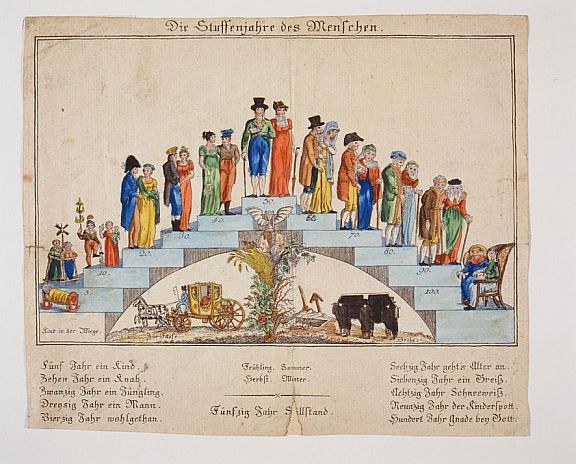 Die Stuffenjahre des Menschen.
50.
40. 60.
30. 70.
20. 80.
10. 90.
5. 100.
Kind in der Wiege.
Die Taufe
Grabe
Fünf Jahr ein Kind.
Zehen Jahr ein Knab.
Zwanzig Jahr ein Jüngling.
Dreysig Jahr ein Mann.
Vierzig Jahr wohlgethan.
Frühling. Sommer.
Herbst. Winter.
Funfzig Jahr Stillstand.
Sechzig Jahr gehts Alter an.
Siebenzig Jahr ein Greiß.
Achtzig Jahr Schneeweiß.
Neunzig Jahr der Kinderspott.
Hundert Jahr Gnade bey Gott.